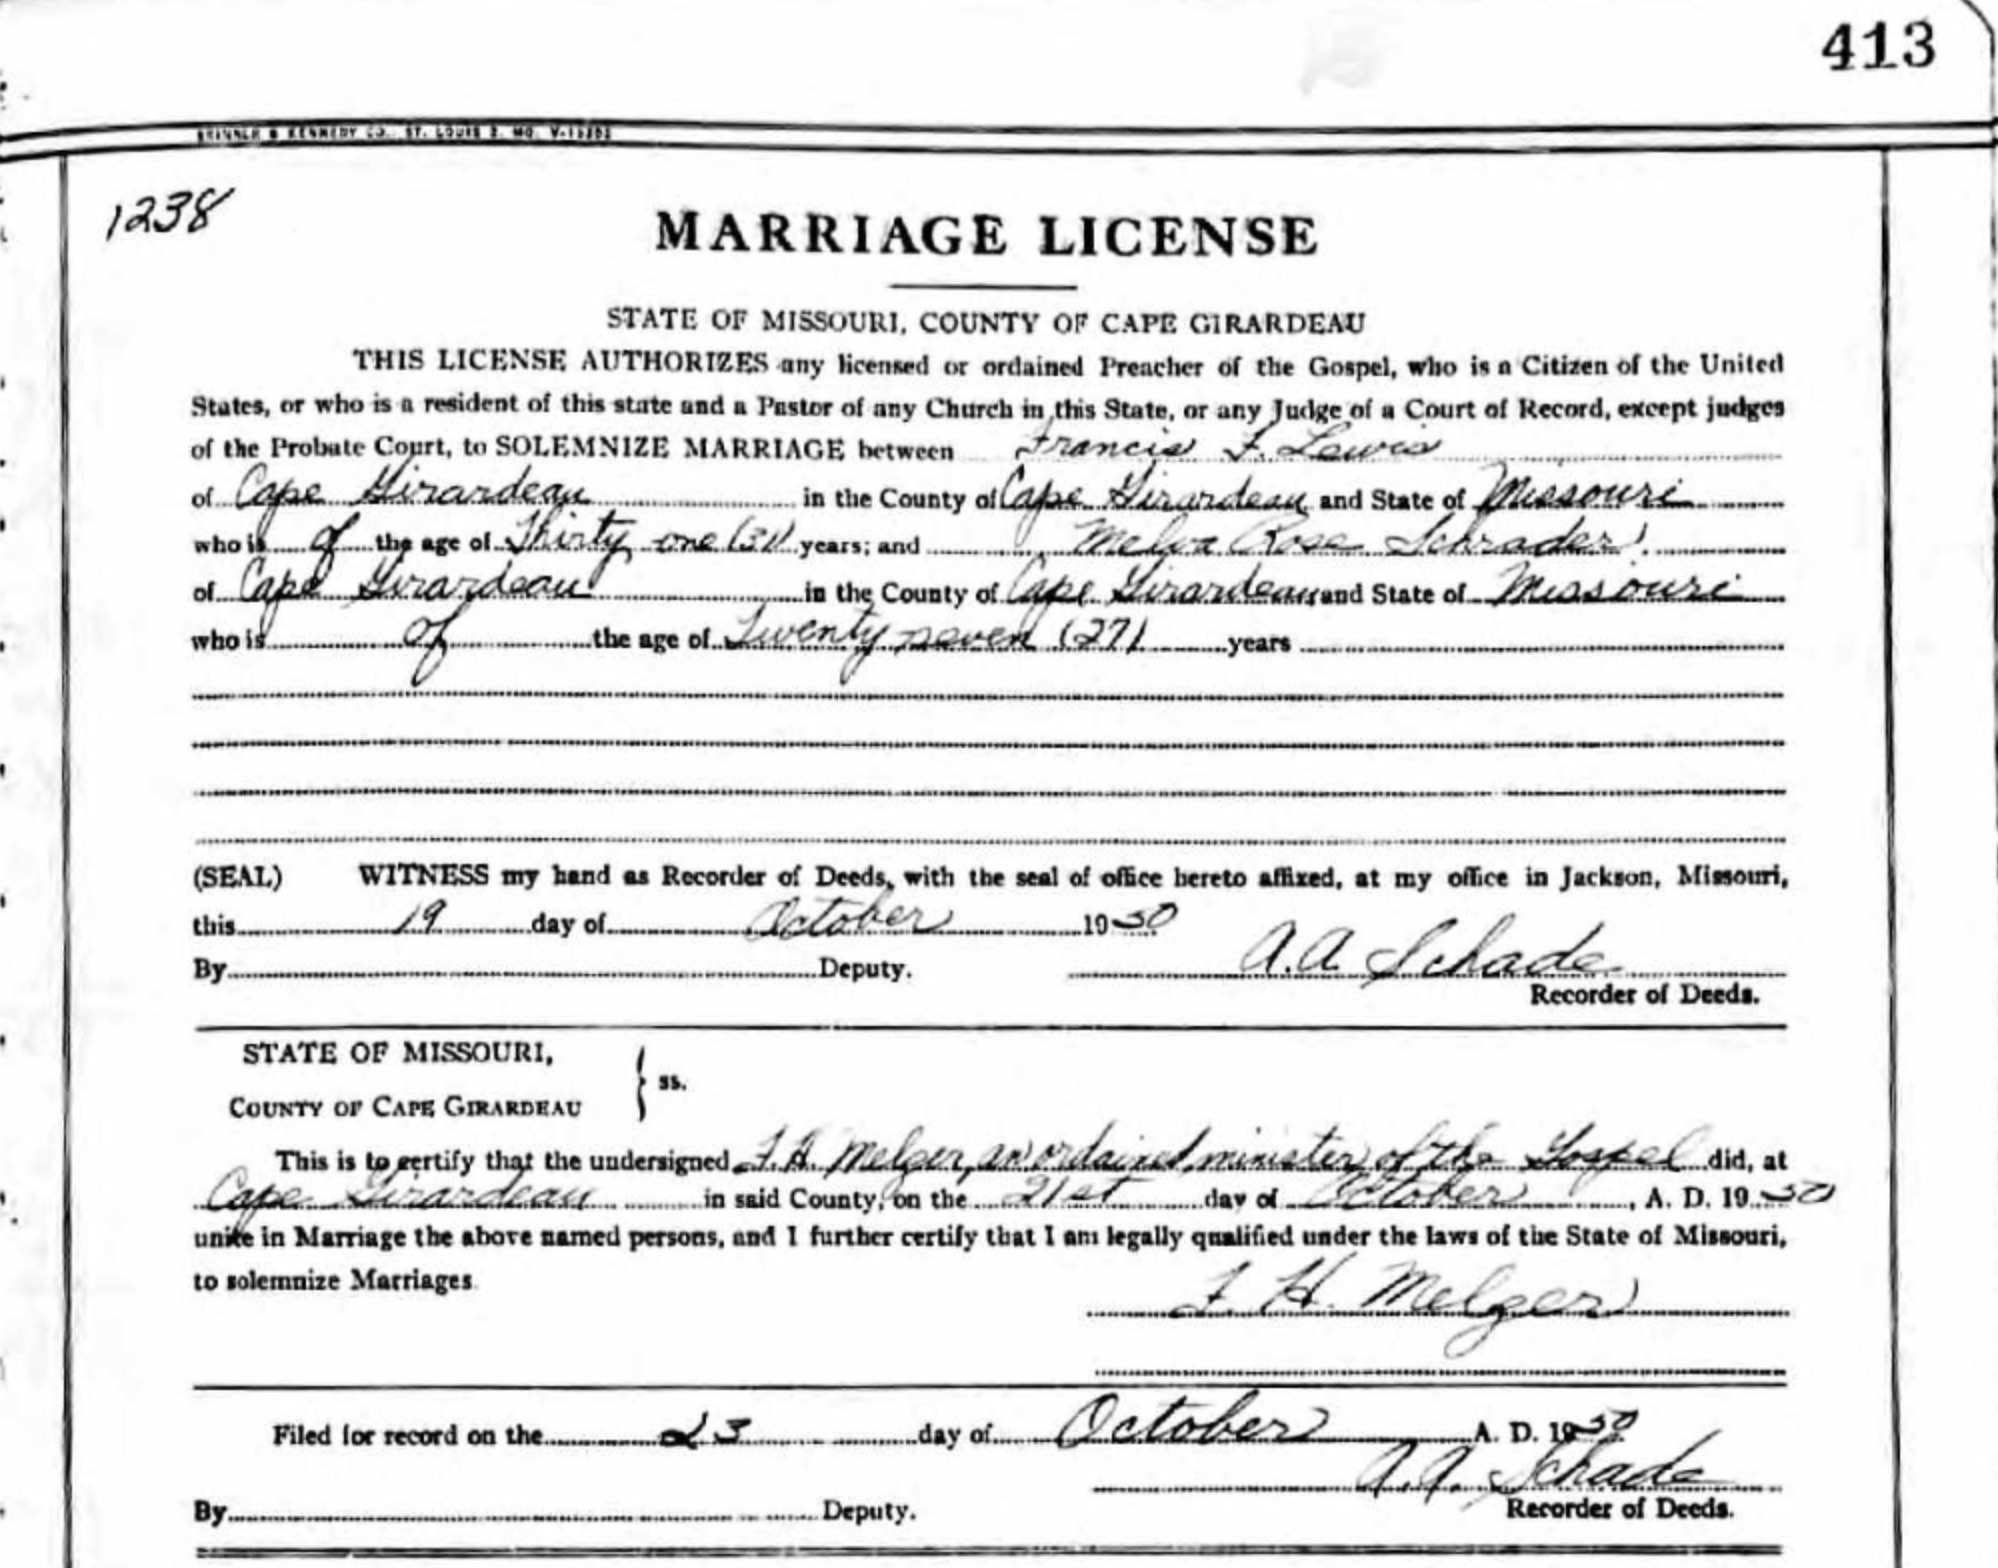 413
SKINNER & KENNEDY CO., ST. LOUIS 2, MO. V-15203
1238
MARRIAGE LICENSE
STATE OF MISSOURI, COUNTY OF CAPE GIRARDEAU
THIS LICENSE AUTHORIZES any licensed or ordained Preacher of the Gospel, who is a Citizen of the United
States, or who is a resident of this state and a Pastor of any Church in this State, or any Judge of a Court of Record, except judges
of the Probate Court, to SOLEMNIZE MARRIAGE between Francis F. Lewis
of Cape Girardeau in the County of Cape Girardeau and State of Missouri
who is of the age of Thirty one (31) years; and Melva Rose Schrader
of Cape Girardeau in the County of Cape Girardeau and State of Missouri
who is of the age of Twenty seven (27) years
(SEAL) WITNESS my hand as Recorder of Deeds, with the seal of office hereto affixed, at my office in Jackson, Missouri,
this 19 day of October 1950
By Deputy. A.A. Schade
Recorder of Deeds.
STATE OF MISSOURI,
COUNTY OF CAPE GIRARDEAU } ss.
This is to certify that the undersigned F. H. Melzer, an ordained minister of the Gospel did, at
Cape Girardeau in said County, on the 21st day of October, A. D. 1950
unite in Marriage the above named persons, and I further certify that I am legally qualified under the laws of the State of Missouri,
to solemnize Marriages.
F. H. Melzer
Filed for record on the 23 day of October A. D. 1950
A.A. Schade
By Deputy. Recorder of Deeds.